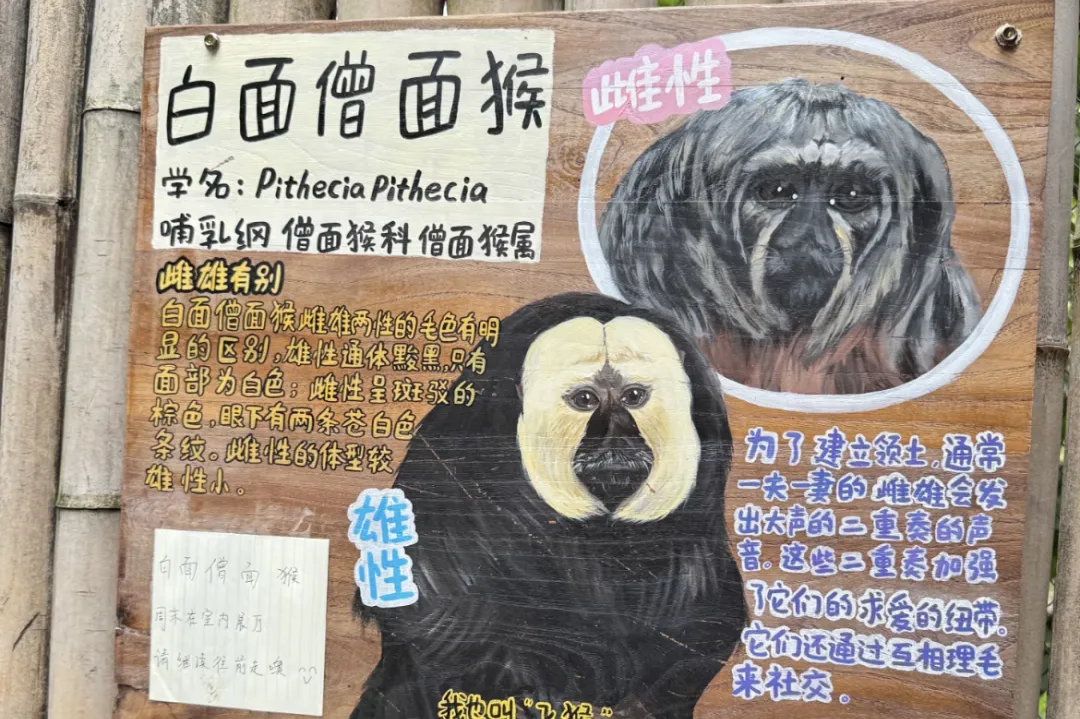 白面僧面猴
学名：Pithecia Pithecia
哺乳纲 僧面猴科 僧面猴属
雌性
雌雄有别
白面僧面猴雌雄两性的毛色有明
显的区别，雄性通体黢黑，只有
面部为白色；雌性呈斑驳的
棕色，眼下有两条苍白色
条纹。雌性的体型较
雄性小。
雄性
为了建立领土，通常
一夫一妻的雌雄会发
出大声的二重奏的声
音。这些二重奏加强
了它们的求爱的纽带。
它们还通过互相理毛
来社交。
白面僧面猴
周末在室内展厅
请继续往前走噢
我也叫“飞猴”